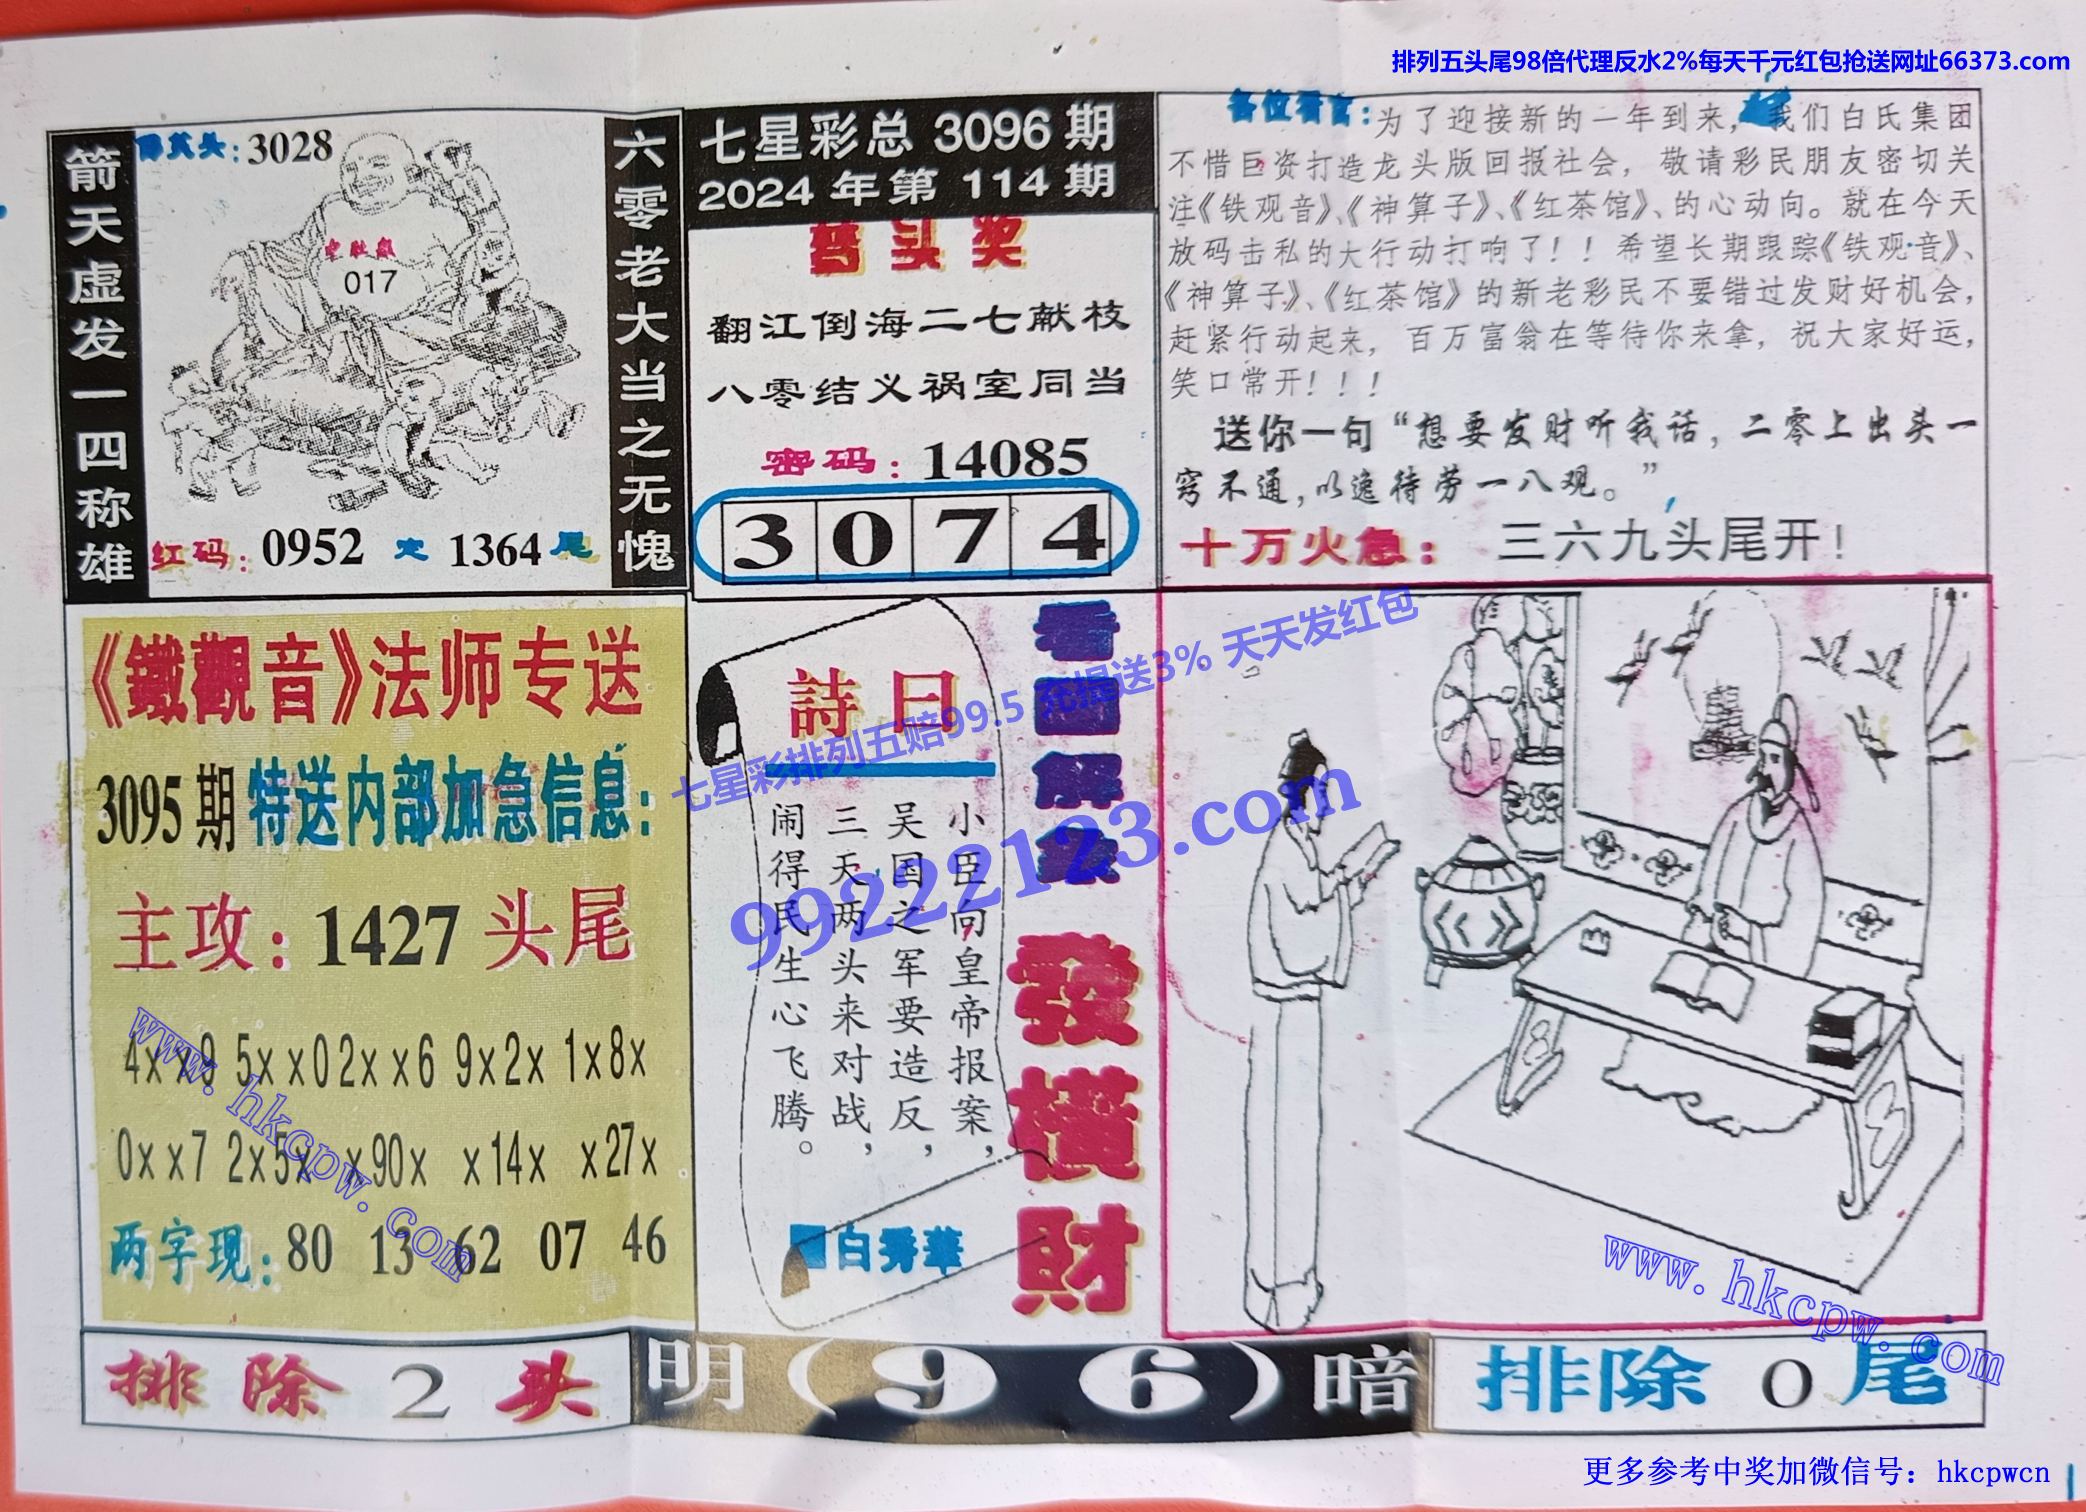 排列五头尾98倍代理反水2%每天千元红包抢送网址66373.com
箭天虚发一四称雄
3028
017
红码：0952 定 1364 尾
六零老大当之无愧
七星彩总 3096 期
2024 年第 114 期
头奖
翻江倒海二七献枝
八零结义祸室同当
密码：14085
3 0 7 4
各位看官：为了迎接新的一年到来，我们白氏集团
不惜巨资打造龙头版回报社会，敬请彩民朋友密切关
注《铁观音》、《神算子》、《红茶馆》、的心动向。就在今天
放码击私的大行动打响了！！希望长期跟踪《铁观音》、
《神算子》、《红茶馆》的新老彩民不要错过发财好机会，
赶紧行动起来，百万富翁在等待你来拿，祝大家好运，
笑口常开！！！
送你一句“想要发财听我话，二零上出头一
窍不通，以逸待劳一八观。”
十万火急：三六九头尾开！
《鐵觀音》法师专送
3095期 特送内部加急信息：
主攻：1427 头尾
4xx9 5xx0 2xx6 9x2x 1x8x
0xx7 2x5x x90x x14x x27x
两字现：80 13 62 07 46
詩曰
小臣向皇帝报案，
吴国之军要造反，
三天两头来对战，
闹得民生心飞腾。
白秀華
看图解
發橫財
七星彩排列五赔99.5 充提送3% 天天发红包
99222123.com
www.hkcpw.com
www.hkcpw.com
排除 2 头
明(9 6)暗
排除 0 尾
更多参考中奖加微信号：hkcpwcn